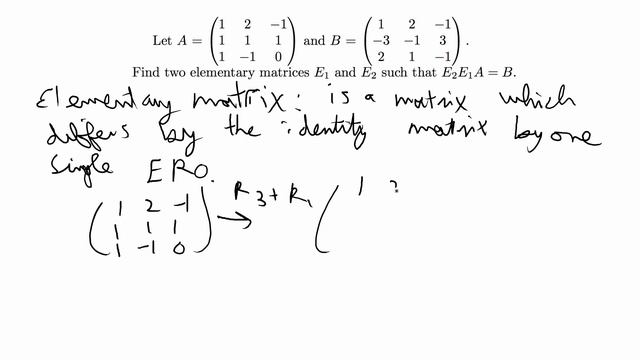 Let A = \begin{pmatrix} 1 & 2 & -1 \\ 1 & 1 & 1 \\ 1 & -1 & 0 \end{pmatrix} and B = \begin{pmatrix} 1 & 2 & -1 \\ -3 & -1 & 3 \\ 2 & 1 & -1 \end{pmatrix}.
Find two elementary matrices E_1 and E_2 such that E_2E_1A = B.
Elementary matrix: is a matrix which
differs by the identity matrix by one
single ERO.
\begin{pmatrix} 1 & 2 & -1 \\ 1 & 1 & 1 \\ 1 & -1 & 0 \end{pmatrix} \xrightarrow{R_3 + R_1} ( 1 2